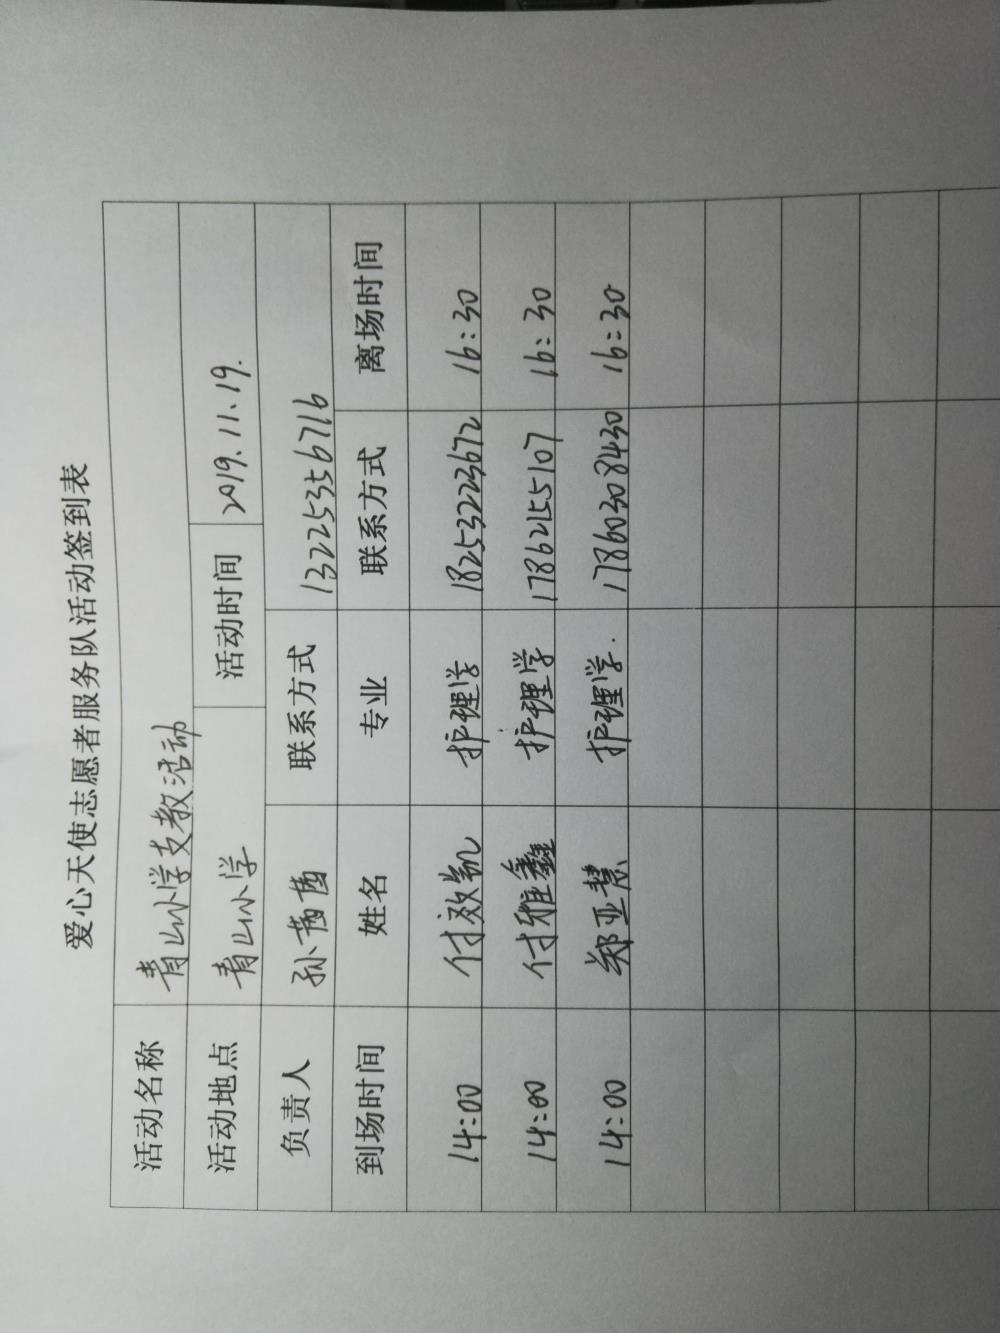 爱心天使志愿者服务队活动签到表
活动名称 青山小学支教活动
活动地点 青山小学 活动时间 2019.11.19.
负责人 孙茜茜 联系方式 13225356716
到场时间 姓名 专业 联系方式 离场时间
14:00 付效凯 护理学 18253223672 16:30
14:00 付雅鑫 护理学 17862155107 16:30
14:00 郑亚慧 护理学. 17860308430 16:30